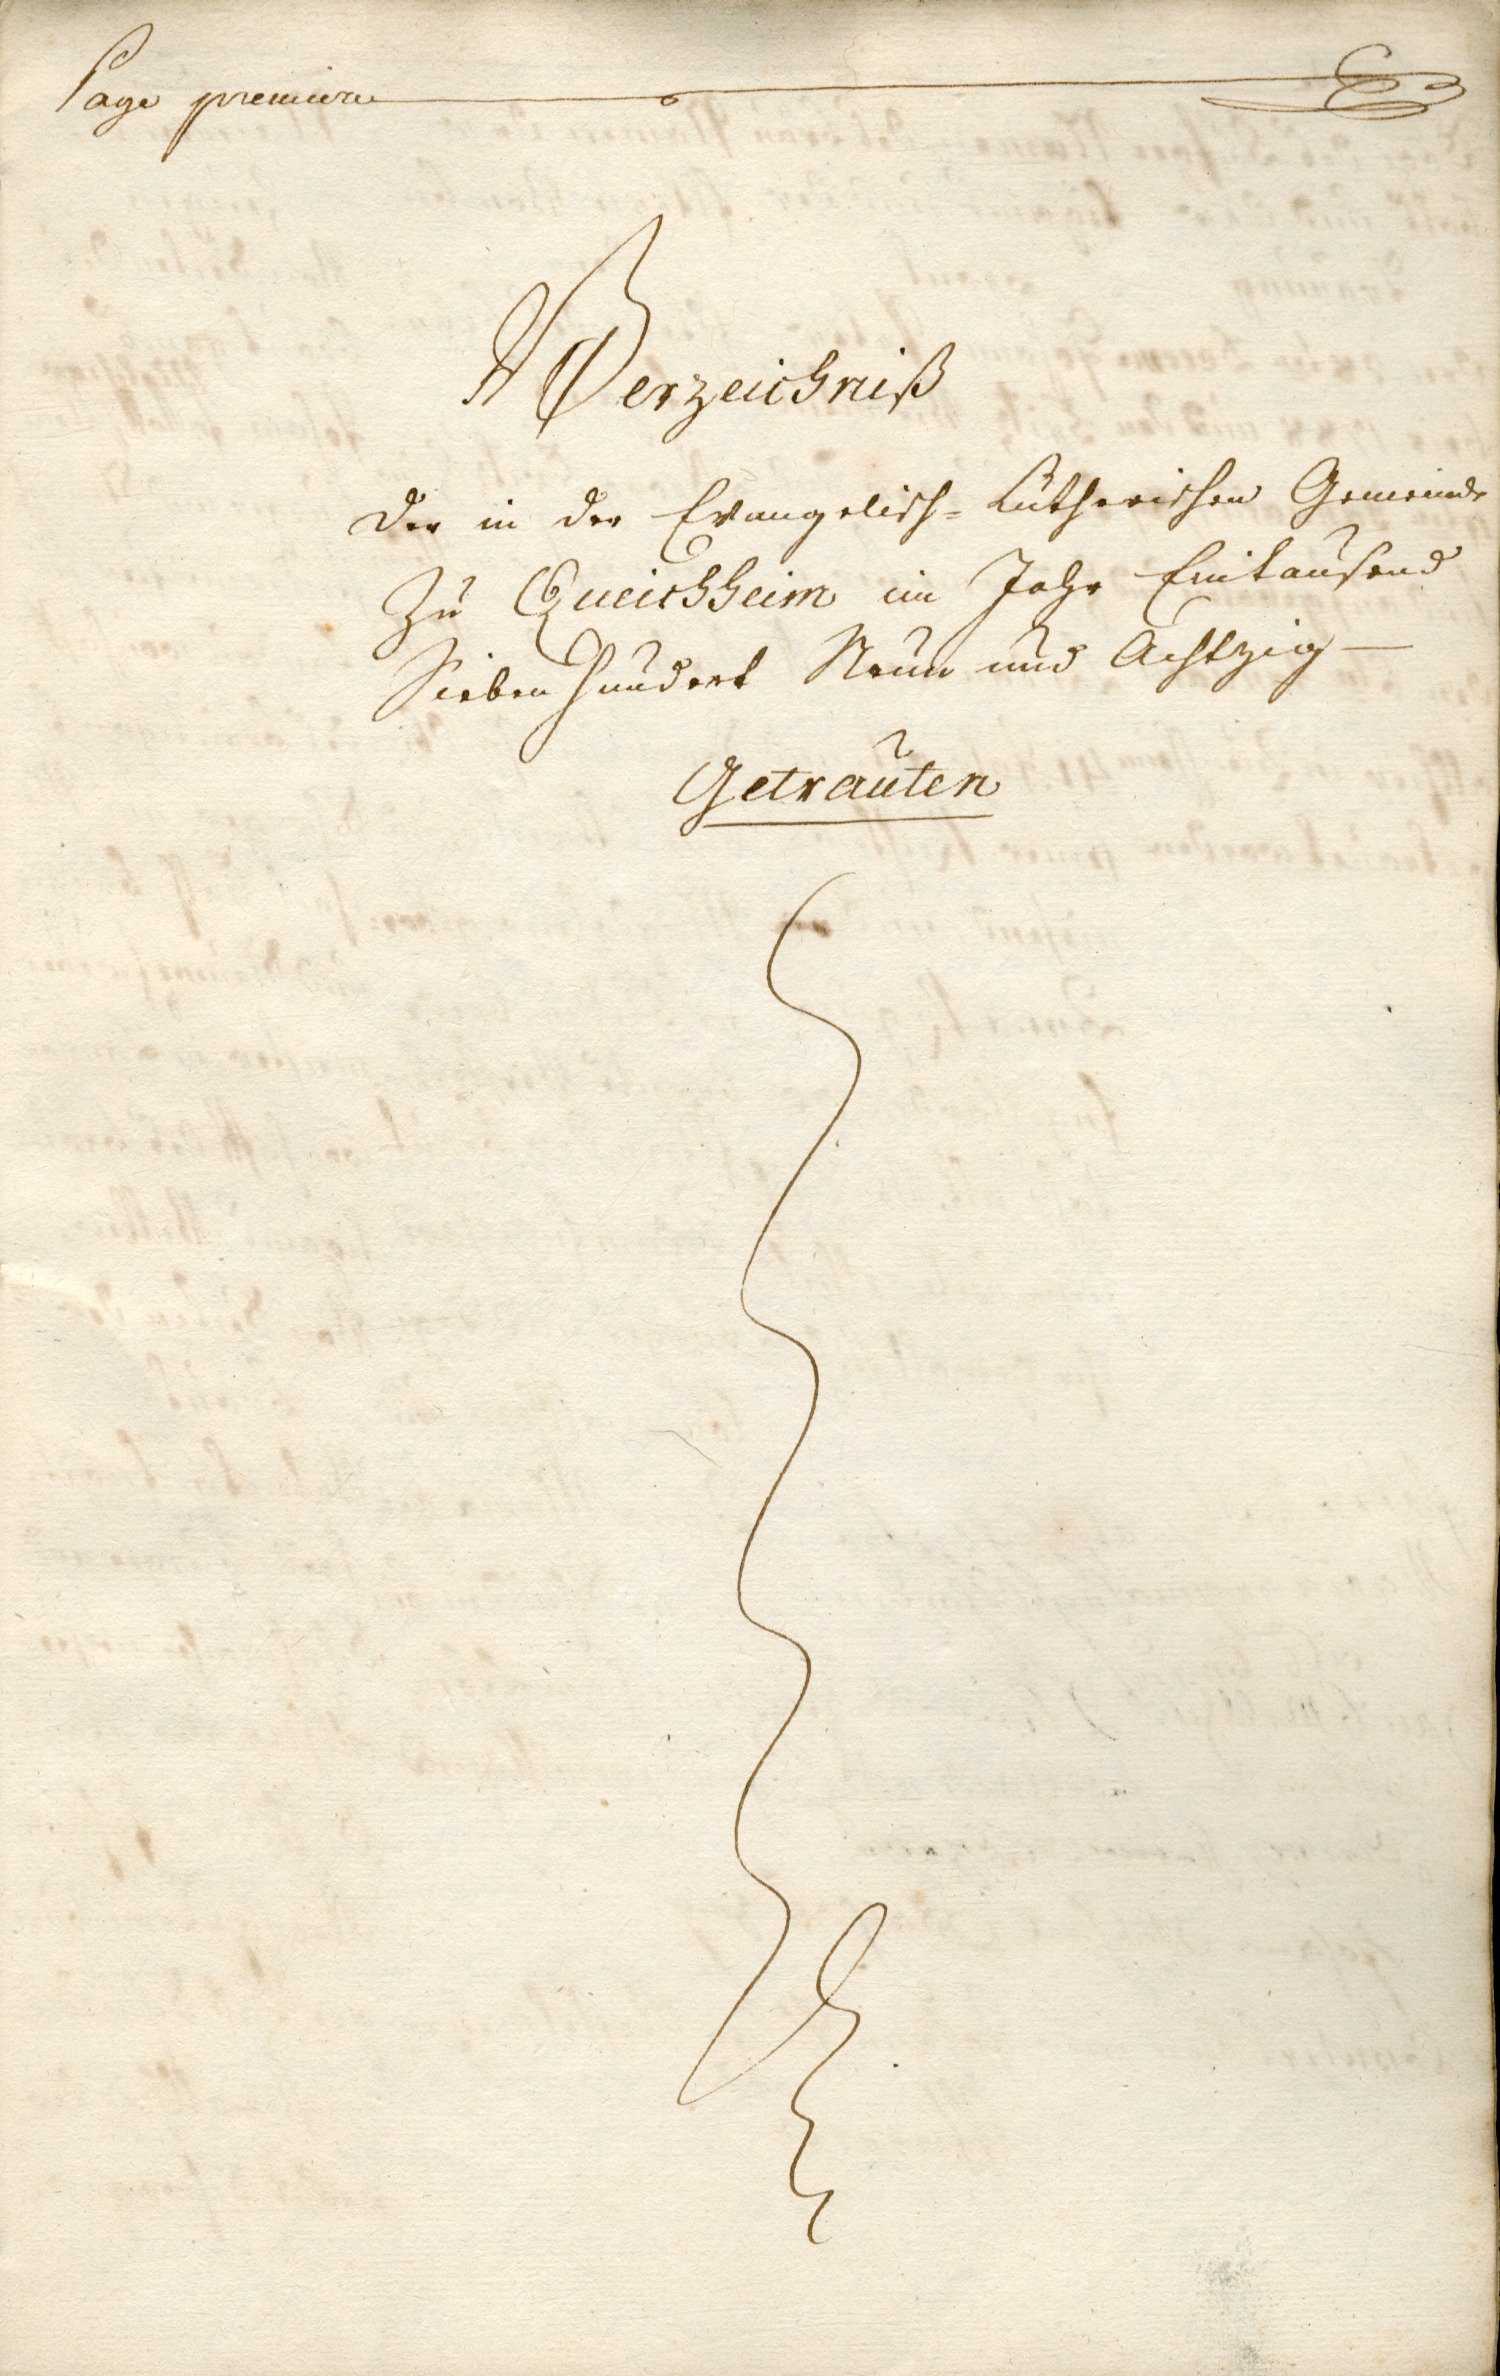 Page premiere
Verzeichniß
der in der Evangelisch-Lutherischen Gemeinde
Zu Queichheim im Jahr Eintausend
Siebenhundert Neun und Achtzig —
Getrauten